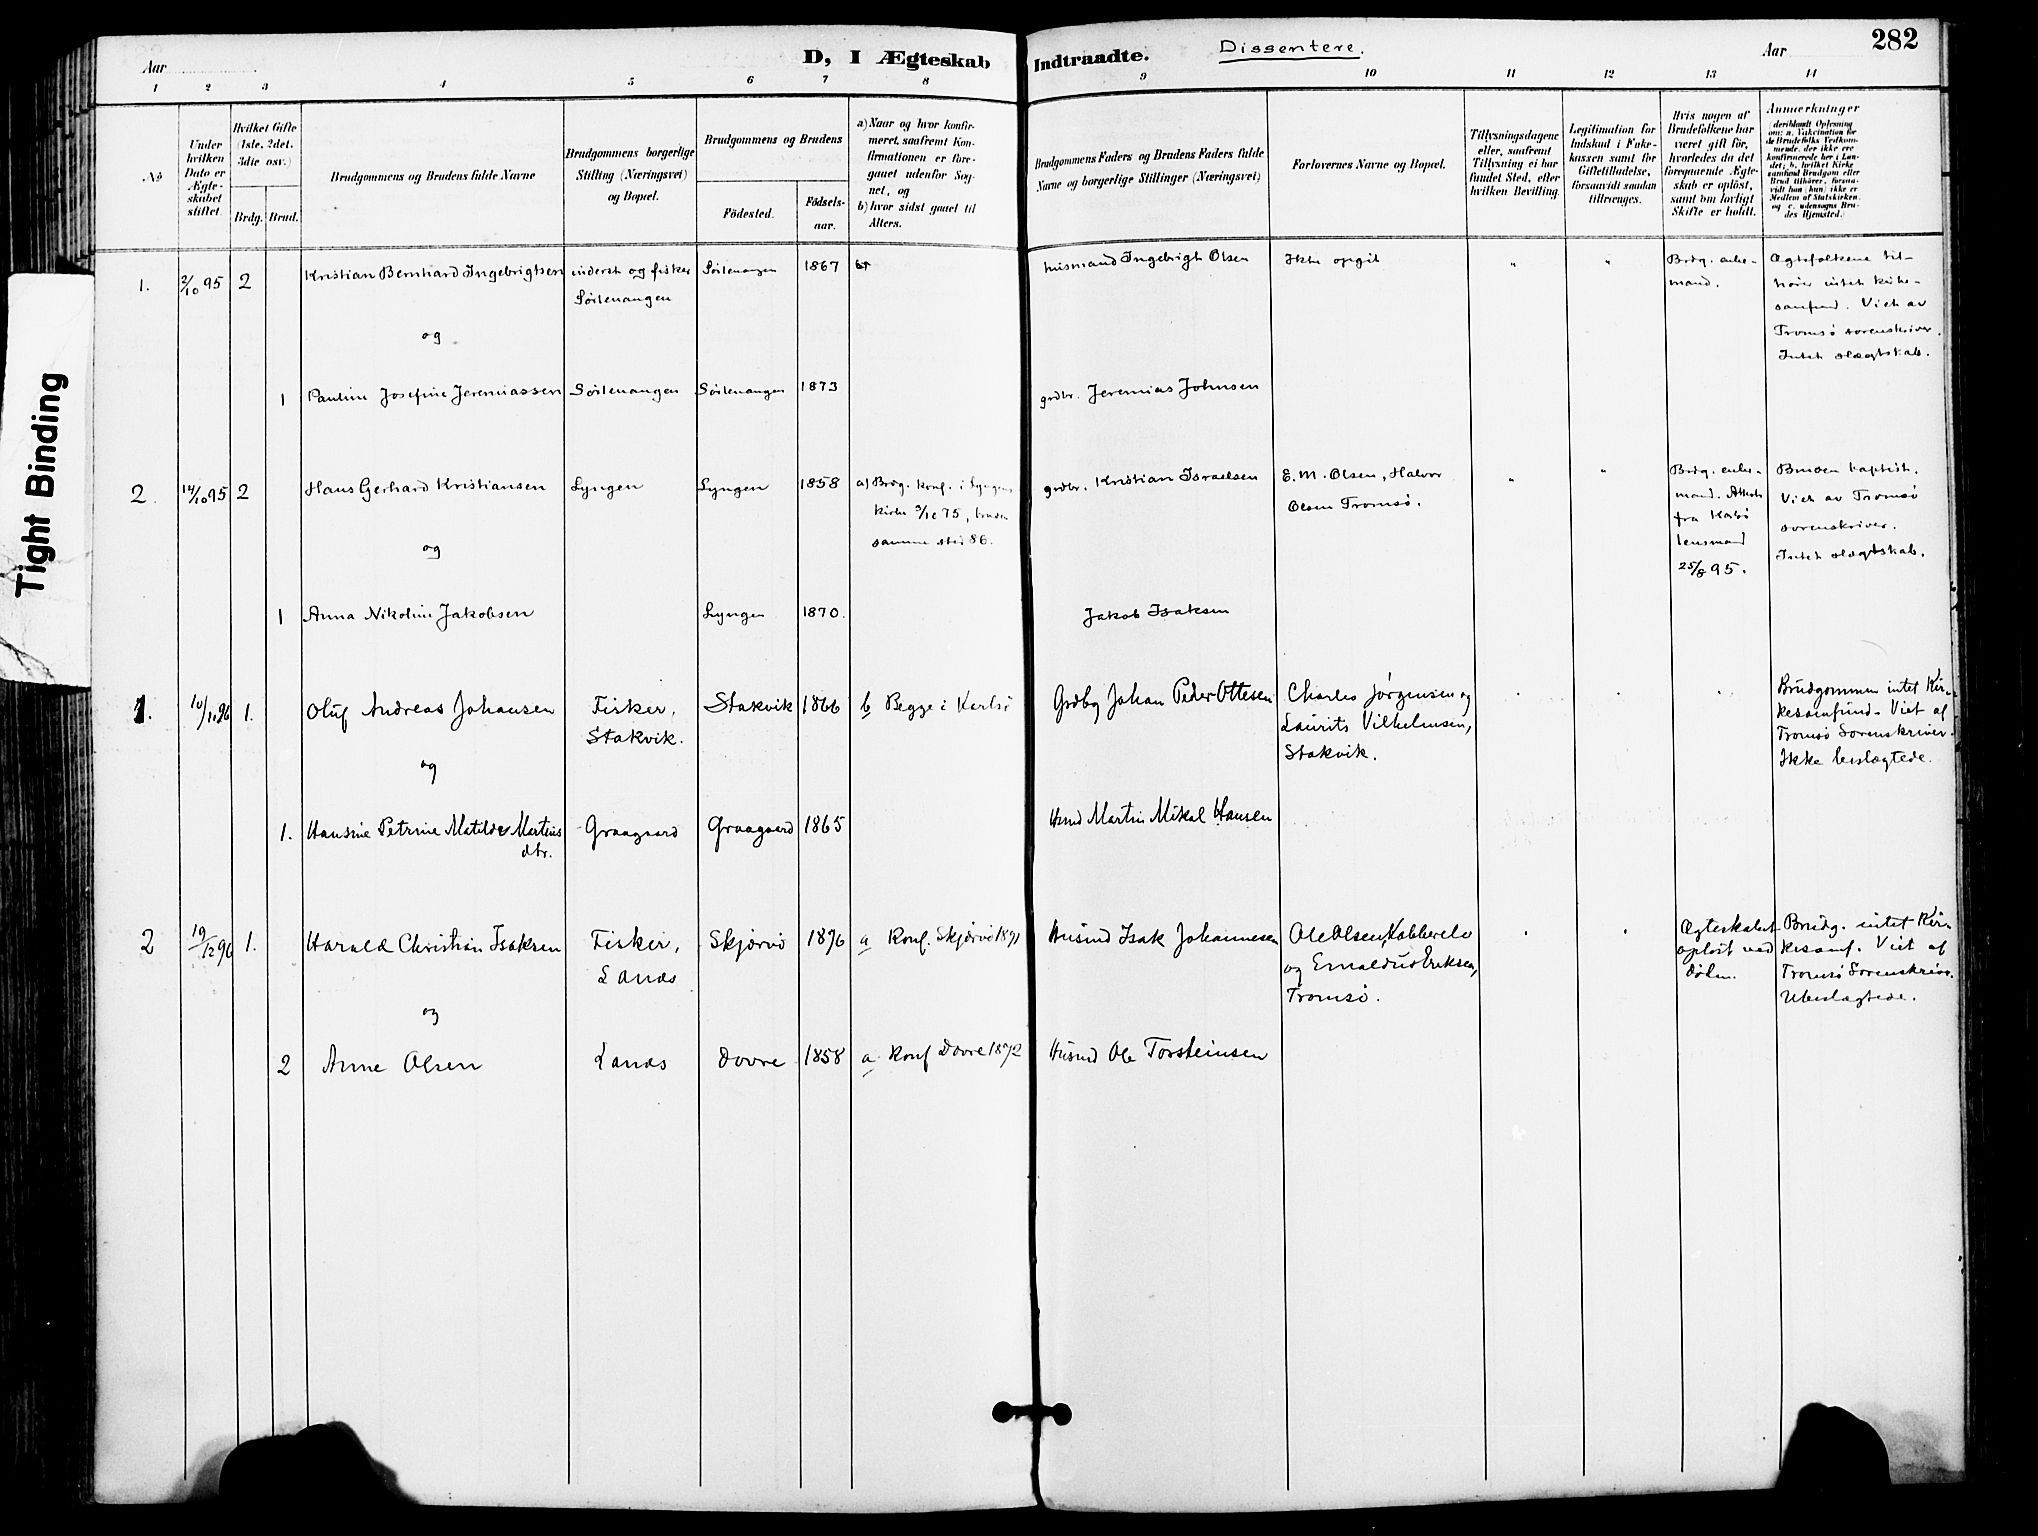 282
Aar
D, I Ægteskab Indtraadte.
Dissentere.
Aar
1 2 3 4 5 6 7 8 9 10 11 12 13 14
No
Under
hvilken
Dato er
Ægte-
skabet
stiftet.
Hvilket Gifte
(1ste, 2det,
3die osv.)
Brdg. Brud.
Brudgommens og Brudens fulde Navne
Brudgommens borgerlige
Stilling (Næringsvei)
og Bopæl.
Brudgommens og Brudens
Födested.
Födsels-
aar.
a) Naar og hvor konfir-
meret, saafremt Kon-
firmationen er fore-
gaaet udenfor Sog-
net, og
b) hvor sidst gaaet til
Alters.
Brudgommens Faders og Brudens Faders fulde
Navne og borgerlige Stillinger (Næringsvei)
Forlovernes Navne og Bopæl.
Tillysningsdagene
eller, saafremt
Tillysning ei har
fundet Sted, efter
hvilken Bevilling.
Legitimation for
Indskud i Enke-
kassen samt for
Giftetilladelse,
forsaavidt saadan
tiltrænges.
Hvis nogen af
Brudefolkene har
været gift för,
hvorledes da det
foregaaende Ægte-
skab er oplöst,
samt om lovligt
Skifte er holdt.
Anmerkninger
(deriblandt Oplysning
om: a. Vakcination for
de Brudefolks Vedkom-
mende, der ikke ere
konfirmerede her i Lan-
det; b. hvilket Kirke
samfund Brudgom eller
Brud tilhörer, forsaa-
vidt han (hun) ikke er
Medlem af Statskirken,
og c. udensogns Bru-
des Hjemsted.)
1. 2/10 95 2 Kristian Bernhard Ingebrigtsen
inderst og fisker
Sörlenangen
Sörlenangen 1867
husmand Ingebrigt Olsen
Ikke opgit " "
Brdg. enke-
mand.
Ægtefolkene til-
hører intet kirke-
samfund. Viet av
Tromsö sorenskriver.
Intet slægtskab.
og
1 Pauline Josefine Jeremiassen Sörlenangen Sörlenangen 1873 grdbr. Jeremias Johnsen
2. 14/10 95 2 Hans Gerhard Kristiansen Lyngen Lyngen 1858
a) Brdg. konf. i Lyngens
kirke 3/10 75, bruden
samme sted 86.
grdbr. Kristian Israelsen
E. M. Olsen, Halvor
Olsen Tromsö.
" "
Brdg. enke-
mand. Attest
fra Karlsö
lensmand
25/8 95.
Bruden baptist.
Viet av Tromsö
sorenskriver.
Intet slægtskab.
og
1 Anna Nikoline Jakobsen Lyngen 1870. Jakob Isaksen
1. 10/10 96 1. Oluf Andreas Johansen
Fisker,
Stakvik.
Stakvik 1866 b Begge i Karlsö
Grdbg Johan Peder Ottesen
Charles Jørgensen og
Laurits Vilhelmsen,
Stakvik.
Brudgommen intet Kir-
kesamfund. Viet af
Tromsö Sorenskriver.
Ikke beslægtede.
og
1. Hansine Petrine Matilde Martins
dtr.
Graagaard Graagaard 1865 Husmd Martin Mikal Hansen
2 19/12 96 1. Harald Christian Isaksen
Fisker,
Lanæs
Skjærvö 1876 a Konf. Skjærvö 1891
Husmd Isak Johannesen
Ole Olsen, Kobberelv
og Emaldus Eriksen,
Tromsö.
Ægteskabet
opløst ved
døden.
Brudg. intet Kir-
kesamf. Viet af
Tromsö Sorenskriver.
Ubeslægtede.
og
2 Anne Olsen Lanæs Dovre 1858 a Konf Dovre 1872 Husmd Ole Torsteinsen
Tight Binding